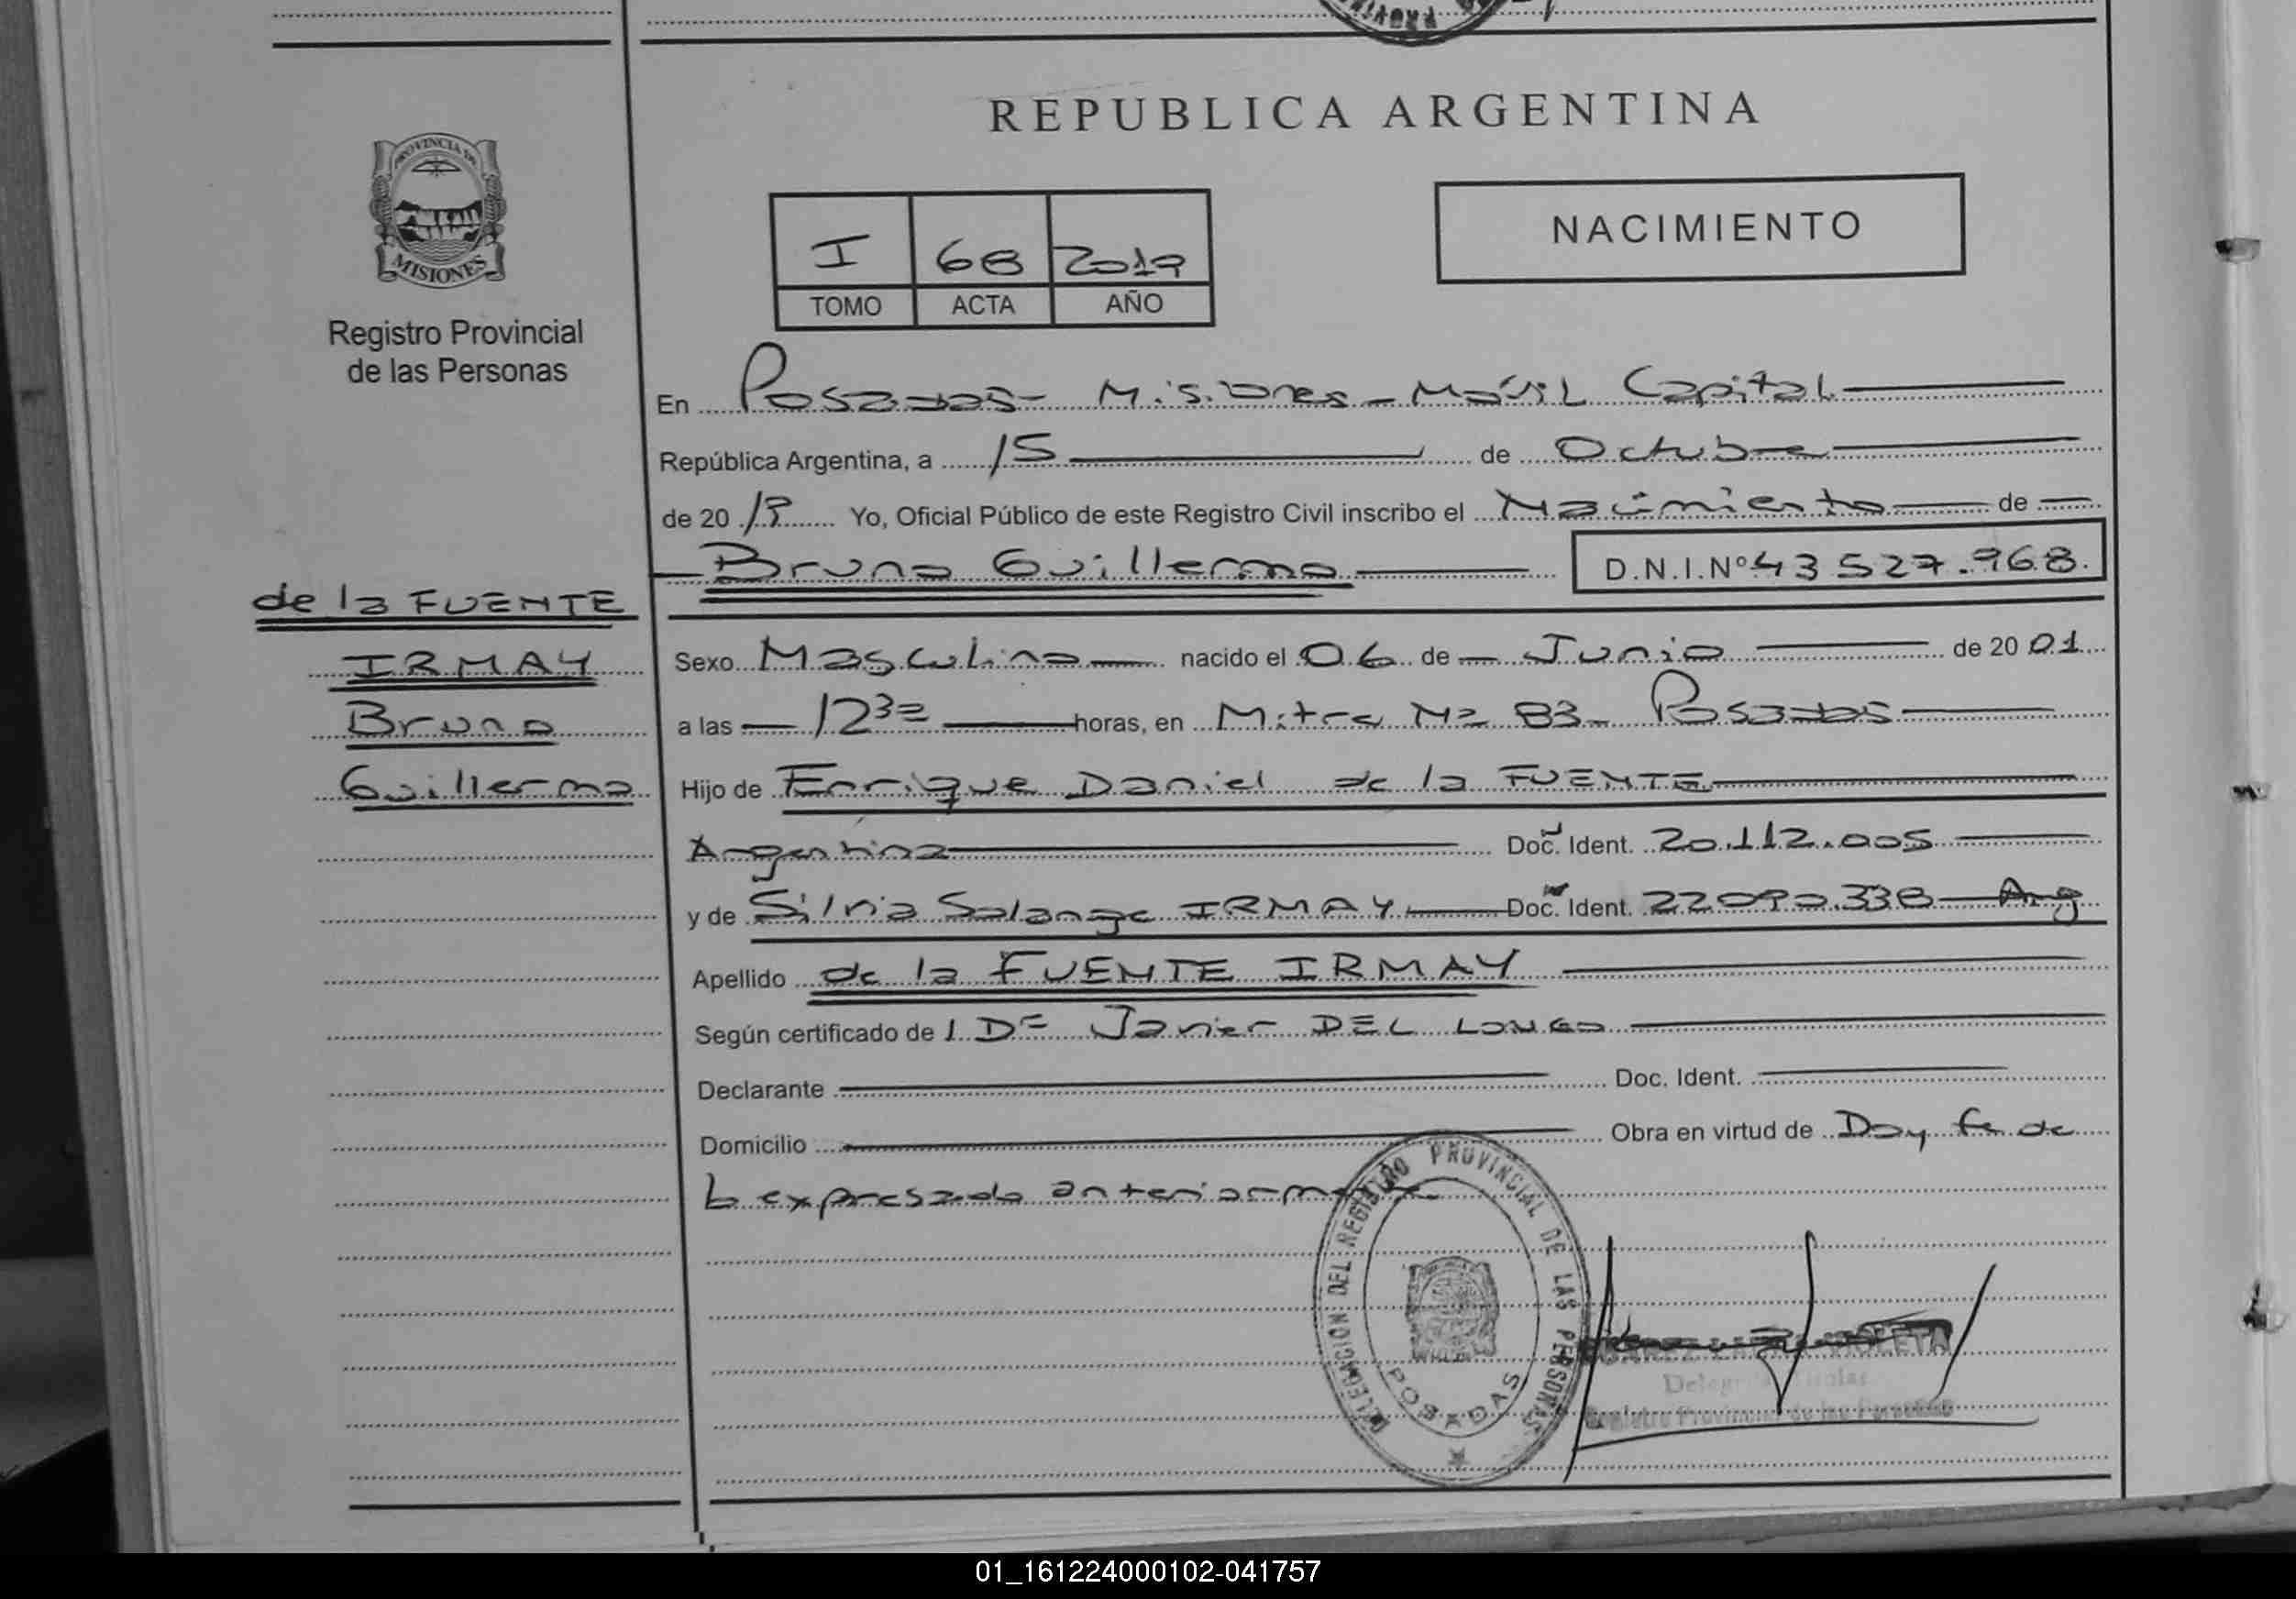 REPUBLICA ARGENTINA
PROVINCIA DE
MISIONES
Registro Provincial
de las Personas
I 68 2019
TOMO ACTA AÑO
NACIMIENTO
En Posadas - Misiones - Móvil Capital
República Argentina, a 15 de Octubre
de 20 19 Yo, Oficial Público de este Registro Civil inscribo el Nacimiento de
Bruno Guillermo D.N.I.Nº 43 527.968.
de la FUENTE
IRMAY
Bruno
Guillermo
Sexo Masculino nacido el 06 de Junio de 20 01
a las 12 30 horas, en Mitre Nº 83 - Posadas
Hijo de Enrique Daniel de la FUENTE
Argentina Doc. Ident. 20.112.005
y de Silvia Solange IRMAY Doc. Ident. 22090.338 Arg
Apellido de la FUENTE IRMAY
Según certificado de Dr Javier DEL LONGO
Declarante Doc. Ident.
Domicilio Obra en virtud de Doy fe de
lo expresado anteriormente
DELEGACION DEL REGISTRO PROVINCIAL DE LAS PERSONAS
POSADAS
VIOLETA
Registro Provincial de las Personas
01_161224000102-041757